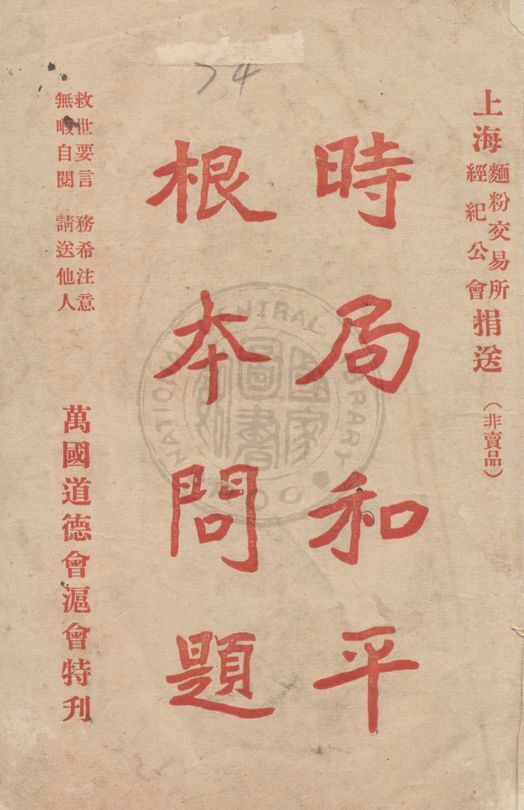 上海麵粉交易所經紀公會捐送（非賣品）
時局和平
根本問題
救世要言 務希注意
無暇自閱 請送他人
萬國道德會滬會特刊
74
國家圖書館
NATIONAL LIBRARY